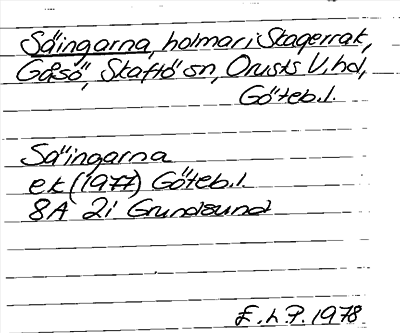 Säingarna, holmar i Skagerrak,
Gåsö, Skaftö sn, Orusts V. hd,
Göteb. l.
Säingarna
ek (1977) Göteb. l.
8A 2i Grundsund
E. h P. 1978